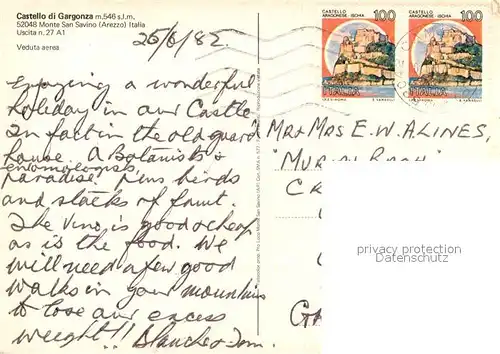 Castello di Gargonza m.546 s.l.m.,
52048 Monte San Savino (Arezzo) Italia
Uscita n. 27 A1
Veduta aerea
26/6/82
CASTELLO ARAGONESE - ISCHIA 100
ITALIA
CASTELLO ARAGONESE - ISCHIA 100
ITALIA
Enjoying a wonderful
holiday in our Castle
In fact in the old guard
house. A Botanists &
entomologists
paradise plus birds
and stacks of fruit.
The vino is good & cheap
as is the food. We
will need a few good
walks in your mountains
to lose our excess
weight!! Blanche & Tom.
MR & MRS E.W. ALINES,
privacy protection